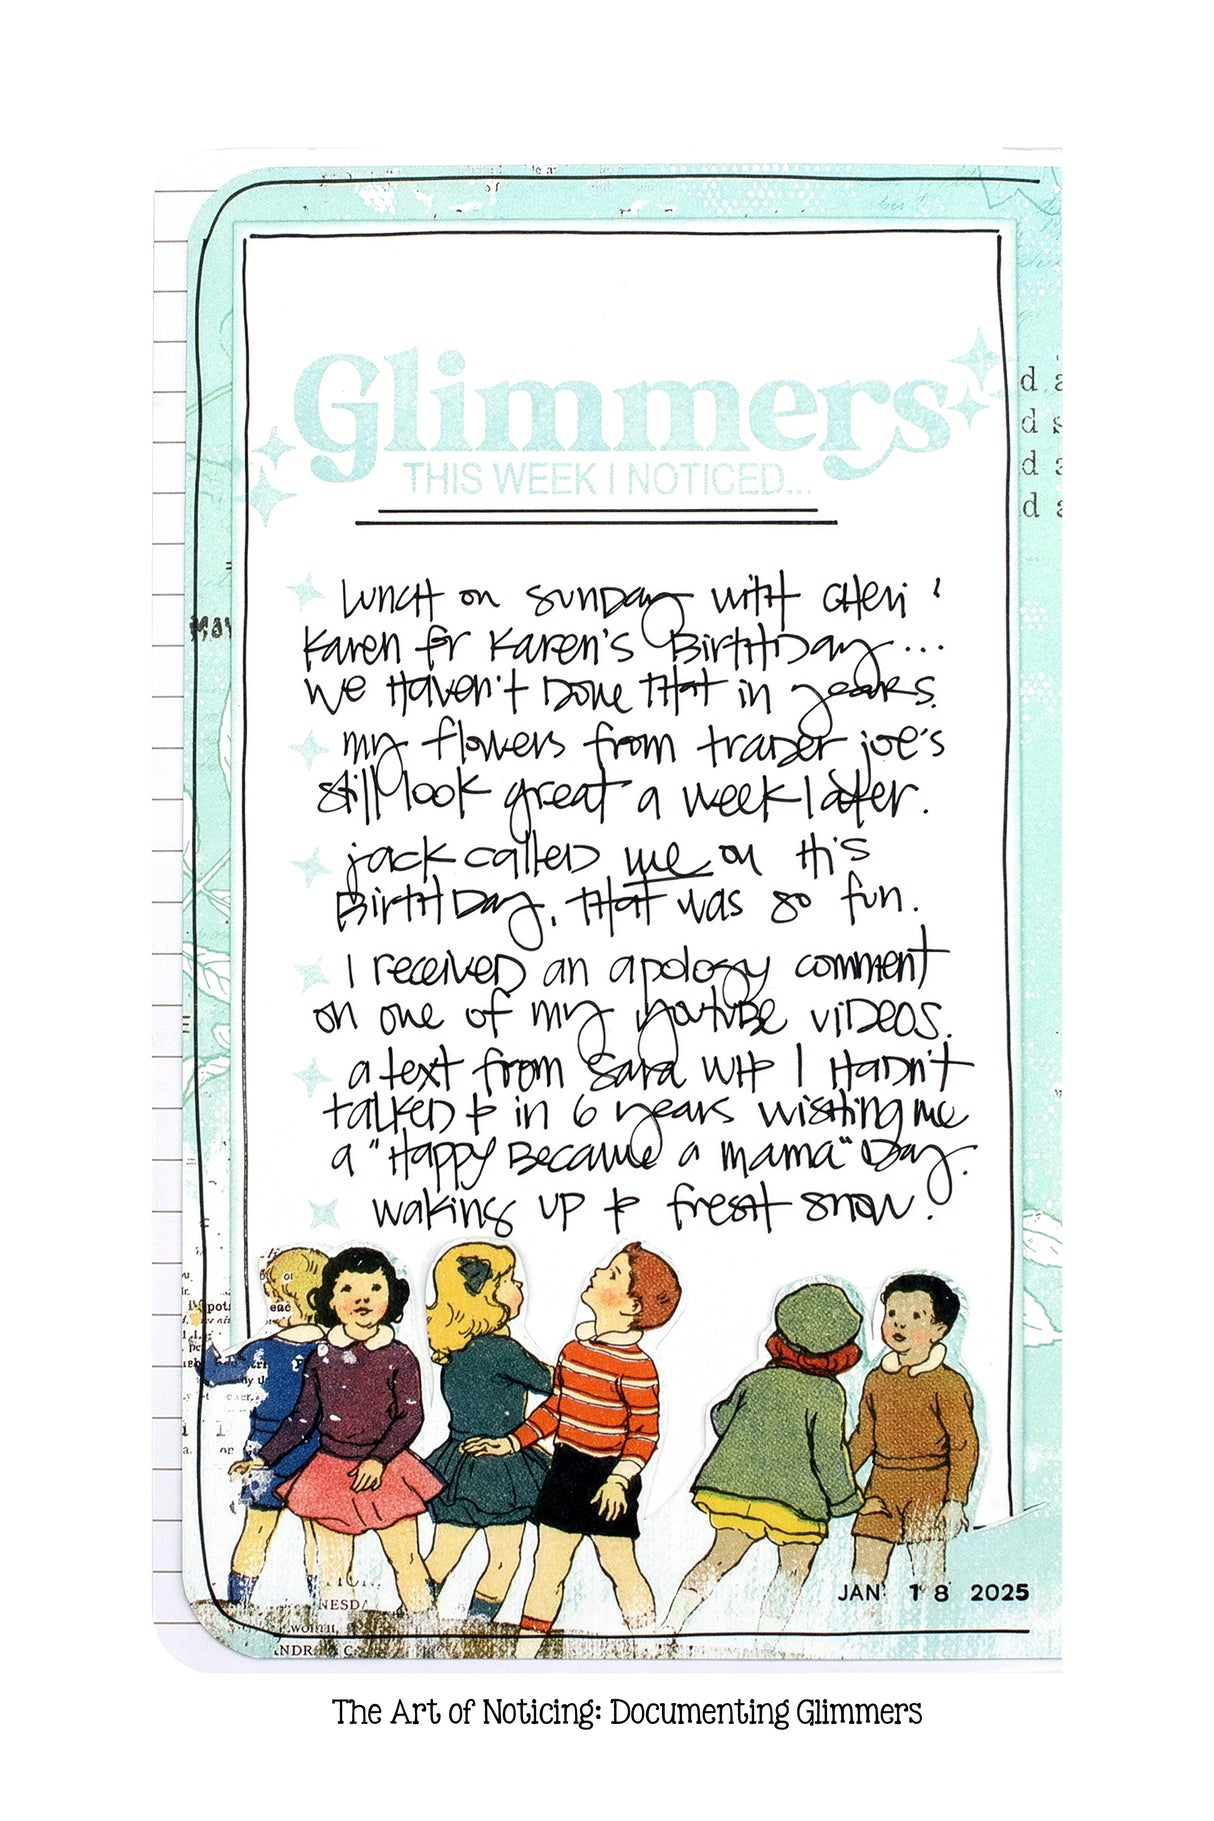 Glimmers
THIS WEEK I NOTICED...
Lunch on Sunday with Cheri '
Karen for Karen's Birthday...
we haven't done that in years.
my flowers from trader joe's
still look great a week later.
jack called me on his
Birthday, that was so fun.
I received an apology comment
on one of my youtube videos.
a text from Sara who I hadn't
talked to in 6 years wishing me
a "Happy Became a mama" Day.
waking up to fresh snow.
MAY
d a
d s
d a
d a
JAN 18 2025
NESDA
The Art of Noticing: Documenting Glimmers